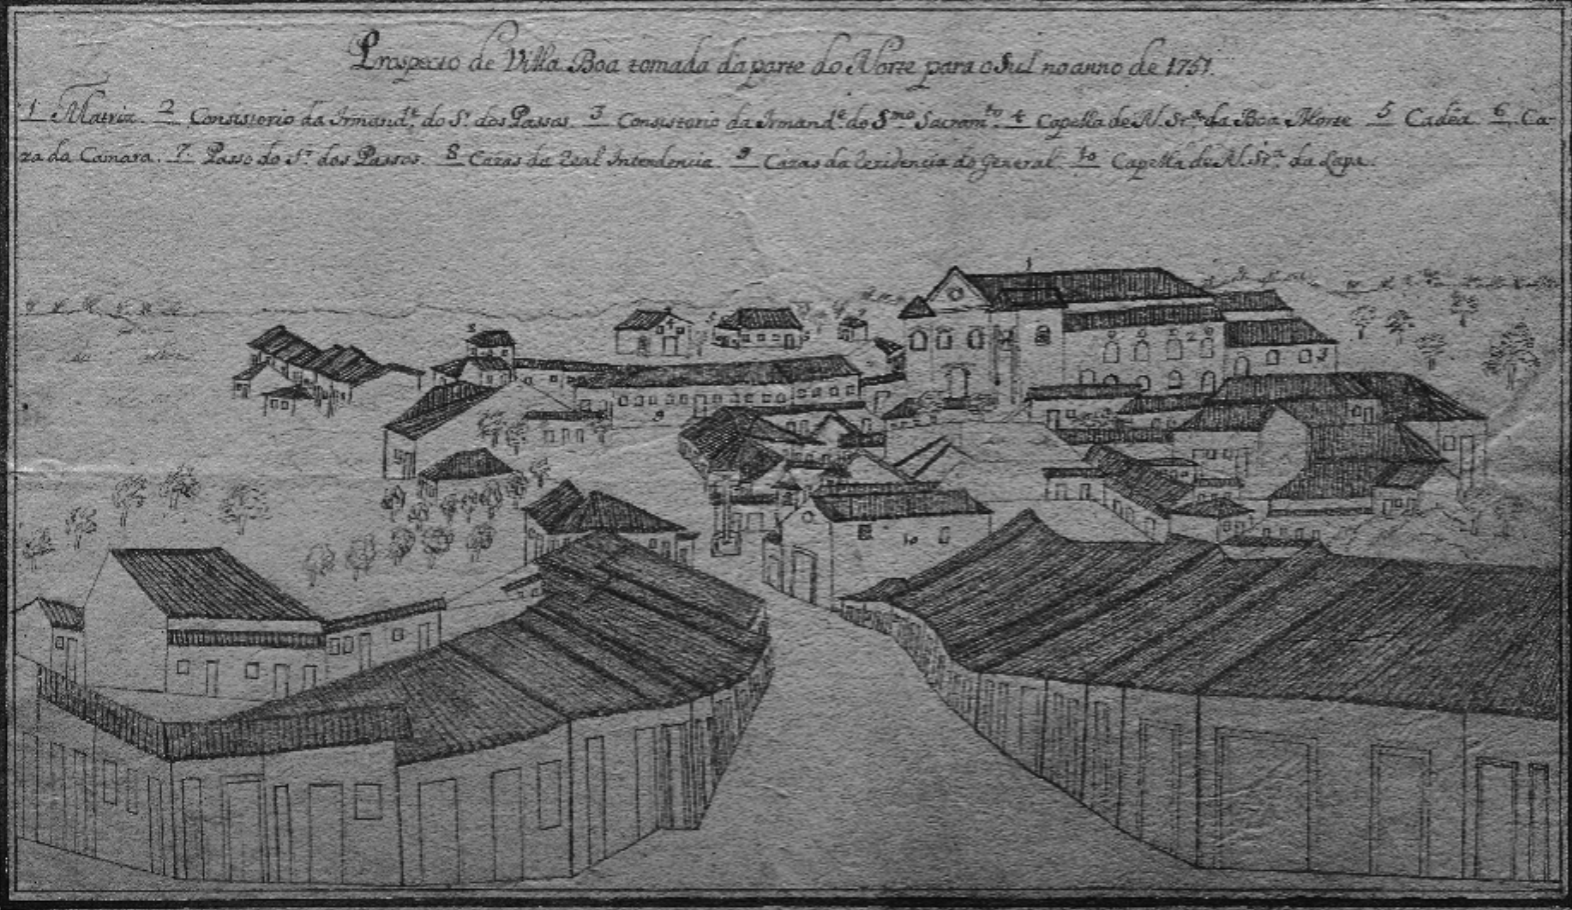 Prospecto de Villa Boa tomada da parte do Norte para o Sul no anno de 1751.
1 Matriz. 2 Consistorio da Irmand.e do S.r dos Passos. 3 Consistorio da Irmand.e do S.mo Sacram.to 4 Capella de N. Sr.a da Boa Morte 5 Cadêa. 6 Ca-
za da Camara. 7 Passo do S.r dos Passos. 8 Cazas da Real Intendencia 9 Cazas da Rezidencia do General. 10 Capella de N. Sr.a da Lapa.
1
5
2
3
9
10